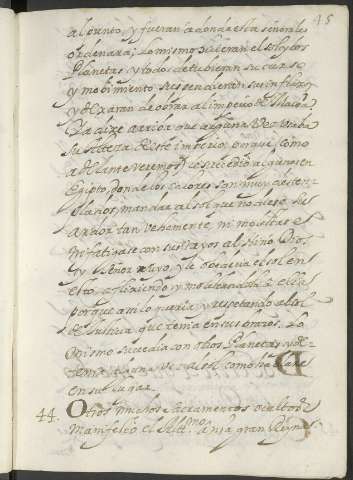 48
al punto, y fueran a donde esta señora les
ordenara; lo mismo hicieran el sol y los
Planetas y todos detubieran su curso
y mobimiento suspendieran su influxo
y dexaran de obrar al imperio de Maria
Ya dixe arriba que alguna vez usaba
su Alteza de este imperio; porque como
adelante veremos, le sucedio algunas en
Egipto, donde los calores son muy destem
plados, mandar al sol que no diese su
ardor tan vehemente, ni molestase
ni fatigase con sus rayos al Niño Dios
y señor suyo, y le obedecia el sol en
esto afligiendo y moderandose a ella
porque asi lo queria, y respetando al sol
de Justicia que tenia en sus brazos. Lo
mismo sucedia con otros Planetas, y de
tenia alguna vez al sol, como
en su lugar
44. Otros muchos sacramentos ocultos
manifesto el Altmo. a n̄ra gran Reyna